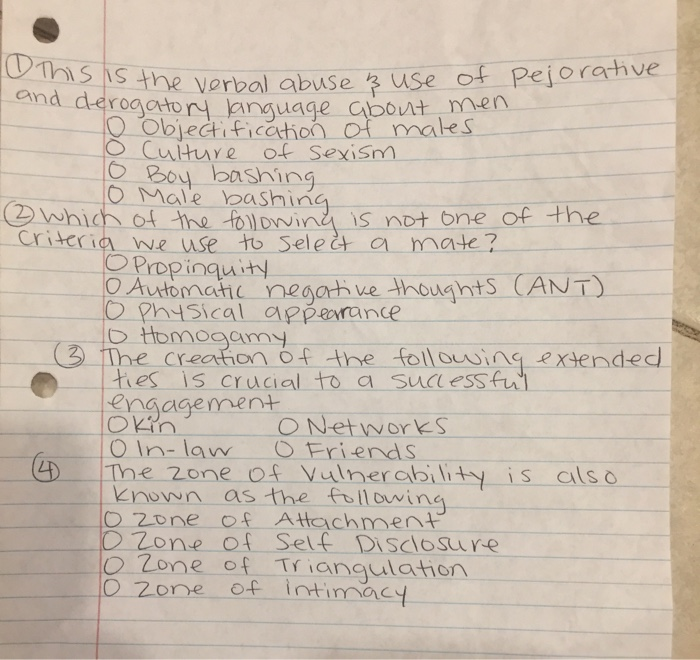 ① This is the verbal abuse & use of pejorative
and derogatory language about men
O Objectification of males
O Culture of sexism
O Boy bashing
O Male bashing
② Which of the following is not one of the
criteria we use to select a mate?
O Propinquity
O Automatic negative thoughts (ANT)
O Physical appearance
O Homogamy
③ The creation of the following extended
ties is crucial to a successful
engagement
O Kin O Networks
O In-law O Friends
④ The zone of Vulnerability is also
known as the following
O Zone of Attachment
O Zone of Self Disclosure
O Zone of Triangulation
O Zone of intimacy